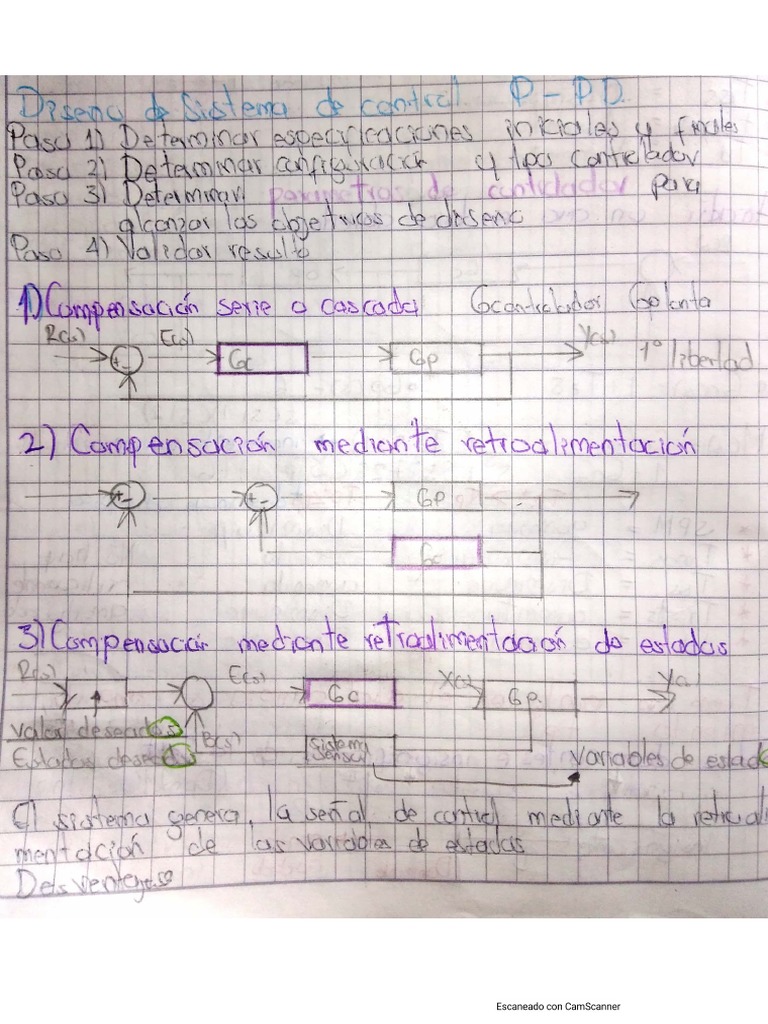 Diseño de Sistema de control P-PD
Paso 1) Determinar especificaciones iniciales y finales
Paso 2) Determinar configuración y tipo controlador
Paso 3) Determinar parametros de controlador para
alcanzar los objetivos de diseño
Paso 4) Validar resulto
1) Compensación serie o cascada Gcontrolador Gplanta
R(s) E(s) Y(s)
+ - Gc Gp 1° libertad
2) Compensación mediante retroalimentación
+ - + - Gp
Gc
3) Compensación mediante retroalimentación de estados
R(s) E(s) X(s) Y(s)
Gc Gp
valor deseados B(s) sistema
Estados deseados sensor Variables de estad
El sistema genera la señal de control mediante la retroali
mentación de las variables de estados
Desventajas
Escaneado con CamScanner